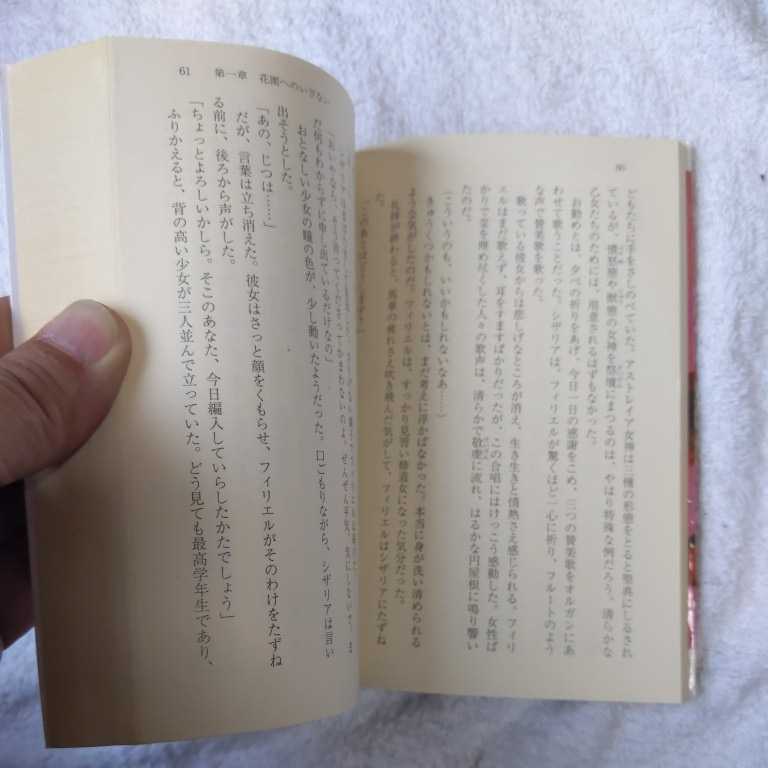 どもたちに手をさしのべていた。アストレイア女神は三種の形態をとると聖典にしるされ
ているが、憤怒態や獣態の女神を祭壇にまつるのは、やはり特殊な例だろう。清らかな
乙女たちのためには、用意されるはずもなかった。
お勤めとは、夕べの祈りをあげ、今日一日の感謝をこめ、三つの賛美歌をオルガンにあ
わせて歌うことだった。シザリアは、フィリエルが驚くほど一心に祈り、フルートのよう
な声で賛美歌を歌った。
歌っている彼女からは悲しげなところが消え、生き生きと情熱さえ感じられる。フィリ
エルはまだ歌えず、耳をすますばかりだったが、この合唱にはけっこう感動した。女性ば
かりで堂を埋め尽くした人々の歌声は、清らかで敬虔に流れ、はるかな円屋根に鳴り響い
たのだ。
(こういうのも、いいかもしれないなあ……)
きゅうくつかもしれないとは、まだ考えに浮かばなかった。本当に身が洗い清められる
ような気がしたのだ。フィリエルは、すっかり見習い修道女になった気分だった。
礼拝が終わると、馬車の疲れさえ吹き飛んだ気がして、フィリエルはシザリアにたずね
た。
61 第一章 花園へのいざない
だ何もわからずに申し出ているだけなの」
おとなしい少女の瞳の色が、少し動いたようだった。口ごもりながら、シザリアは言い
出そうとした。
「あの、じつは……」
だが、言葉は立ち消えた。彼女はさっと顔をくもらせ、フィリエルがそのわけをたずね
る前に、後ろから声がした。
「ちょっとよろしいかしら。そこのあなた、今日編入していらしたかたでしょう」
ふりかえると、背の高い少女が三人並んで立っていた。どう見ても最高学年生であり、